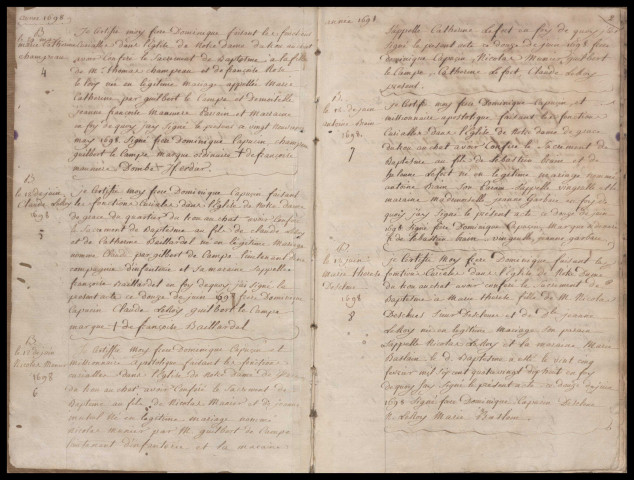 année 1698
B
le 20 mars
marie Catherine
champeau
4
Je certifie moy frere Dominique faisant les fonctions
Curialles dans l'église de Notre Dame du trou au chat
avoir Conferé le Sacrement de Baptême a la fille
de Mr Thomas champeau et de françoise Rose
le Roy né en legitime mariage appellée Marie
Catherine par guilbert de la Campe et Demoiselle
en foy de quoy jay Signé le present ce vingt
mars 1698. Signé frere Dominique Capucin champeau
guilbert la Campe marque ordinaire + de françoise
B
le 12 de juin
Claude LeRoy
1698
5
je Certifie moy frere Dominique Capucin faisant
les fonction Curialles dans l'église de Notre Dame
de grace du quartier du trou au chat avoir Conferé
le Sacrement de Baptême au fils de Claude LeRoy
et de Catherine Baillardel né en legitime Mariage
nommé Claude par guilbert de la Campe lieutenant d'une
compagnie d'infanterie et Sa maraine s'appelle
françoise Baillardel en foy de quoy jai Signé le
present acte ce douze de juin 1698 frere Dominique
Capucin Claude LeRoy guilbert la Campe
marque + de françoise Baillardel
B
le 12 de juin
Nicolas Manier
1698
6
Je Certifie Moy frere Dominique Capucin et
Missionnaire apostolique faisant les fonctions
curialles dans l'église de Notre Dame de grace
du trou au chat avoir Conferé le Sacrement de
Baptême au fils de Nicolas Manier et de jeanne
né en legitime mariage nommé
nicolas manier par Mr guilbert de la Campe
lieutenant d'infanterie et la maraine
année 1698
2
S'appelle Catherine Lefort en foy de quoy j'ay
Signé le present acte ce douze de juin 1698 frere
Dominique Capucin, Nicolas Manier, Guilbert
la Campe, Catherine le fort, Claude LeRoy
present.
B
le 12 de juin
antoine Beam
1698
7
Je Certifie moy frere Dominique Capucin et
missionnaire apostolique faisant les fonction
Curialles dans l'Eglise de Notre Dame de grace
du trou au chat avoir Conferé le Sacrement de
Baptême au fils de Sebastien beam et de
juliene Lefort né en legitime mariage nommé
antoine Beam, Son Parain S'appelle
maraine Mademoiselle jeanne garbeu en foy de
quoy jay Signé le present acte ce douze de juin
1698 Signé frere Dominique Capucin, Marque ordinaire
+ de Sebastien beam
B
le 12 juin
Marie Therese
1698
8
je Certifie Moy frere Dominique faisant les
fonction Curialle dans l'église de Notre Dame
du trou au chat avoir conferé le Sacrement de
Baptême a Marie therese fille de Mr Nicolas
et de Dlle jeanne
LeRoy né en legitime Mariage, Son parain
S'appelle Nicolas LeRoy et la maraine Marie
le d. Baptême a esté le vingt neuf
fevrier mil Sixcent quatrevingt dixhuit en foy
de quoy jay Signé le present acte ce douze de juin
1698 Signé frere Dominique Capucin
N. LeRoy Marie